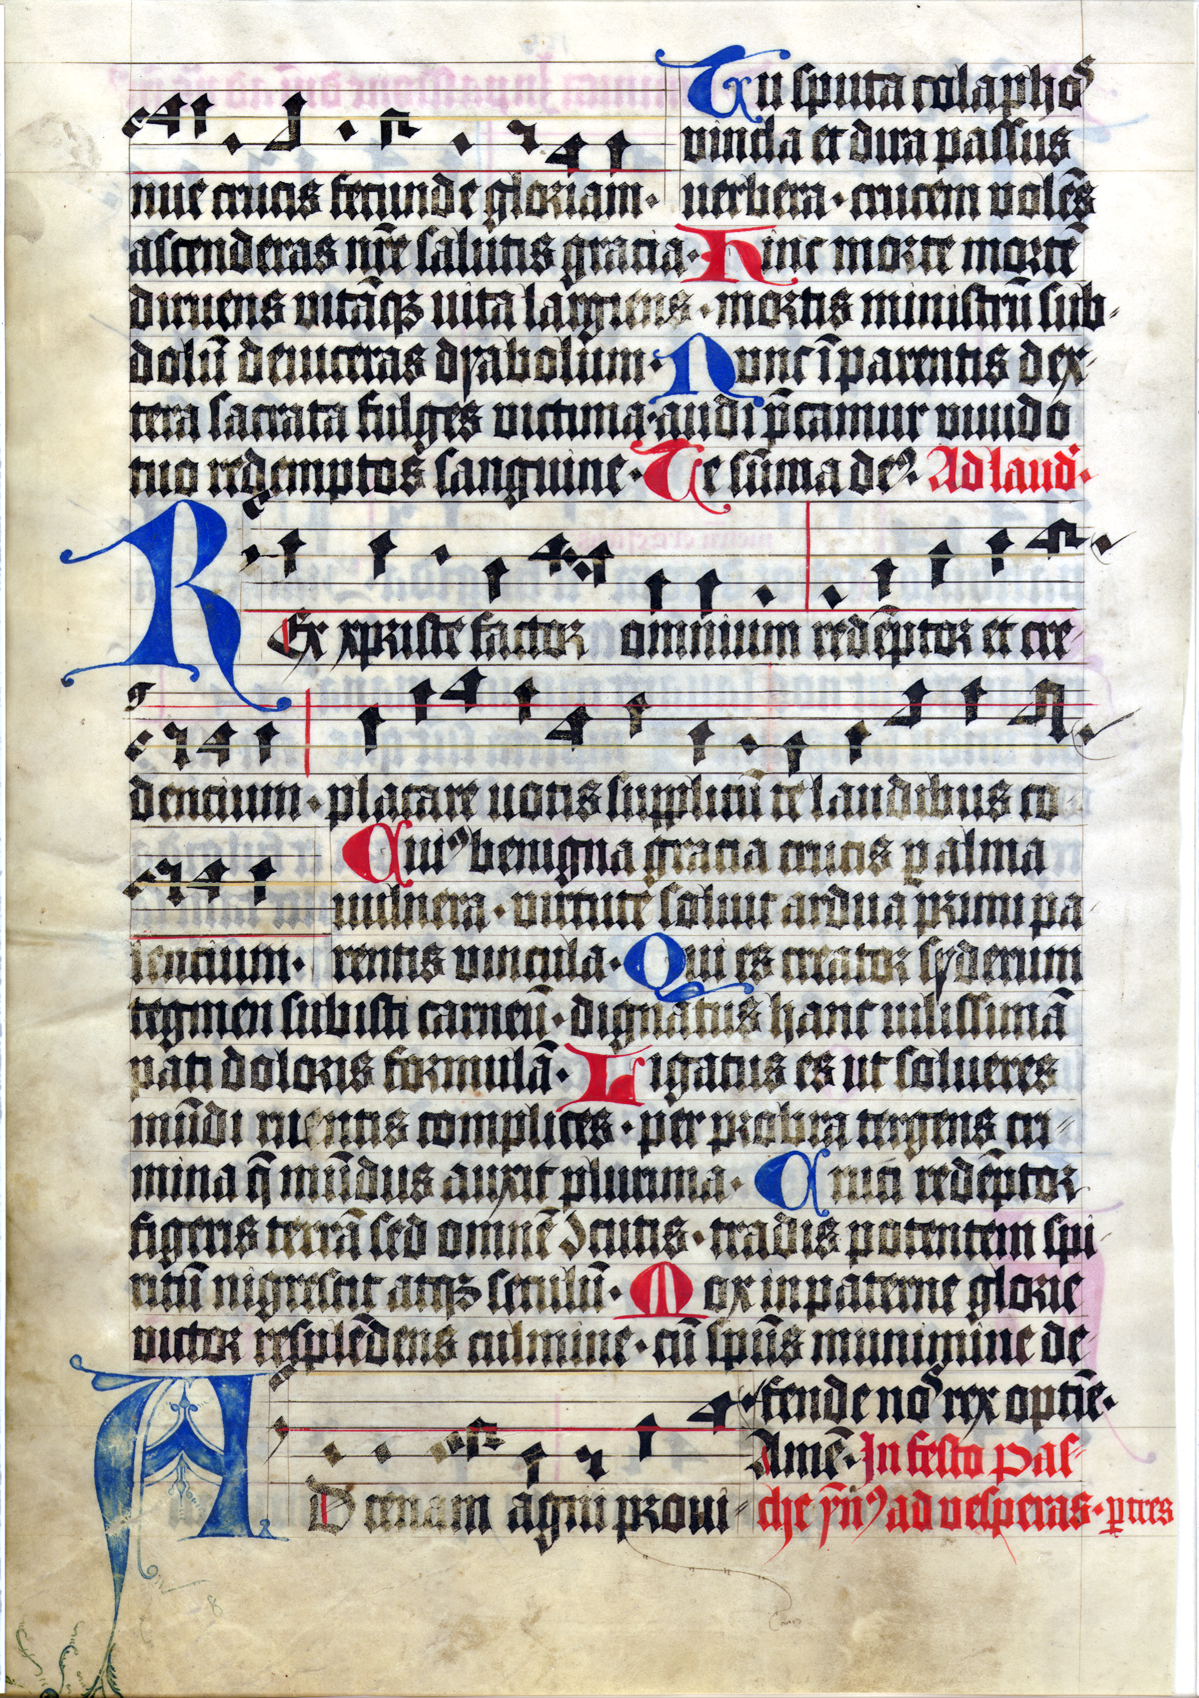 Tu sputa colaphos
vincla et dira passus
nue crucis fecunde gloriam · uerbera · crucem volēs
ascenderas nr̄e salutis gracia · Hinc morte mortē
diruens vitāqꝫ uita largiens · mortis ministrū sub-
dolū deuiceras dyabolum · Nunc ī parentis dex-
tera sacrata fulges victima · audi p̄camur viuido
tuo redemptos sanguine · Te sūma de⁹ · Ad laud̄ ·
REx xpriste factor omnium redēptor et cre-
dencium · placare uotis supplicū te laudibus co-
Cui⁹ benigna gracia crucis p alma
uulnera · virtute soluit ardua primi pa
lencium · rentis vincula · Qui es creator syderum
tegmen subisti carneū · dignatus hanc uilissimā
pati doloris formulā · Ligatus es ut solueres
mūdi ruentis complices · per probra tergens cri-
mina q̄ mūdus auxit plurima · Cruci redēptor
figeris terrā sed omnē ɔcutis · tradis potentem spi
ritū nigrescit atqꝫ seculū · Mox in paterne glorie
victor resplēdens culmine · cū sp̄us munimine de-
fende nos rex optīe ·
Amē · In festo pas-
AD cenam agni proui- che ẏn⁹ ad vesperas · p tres